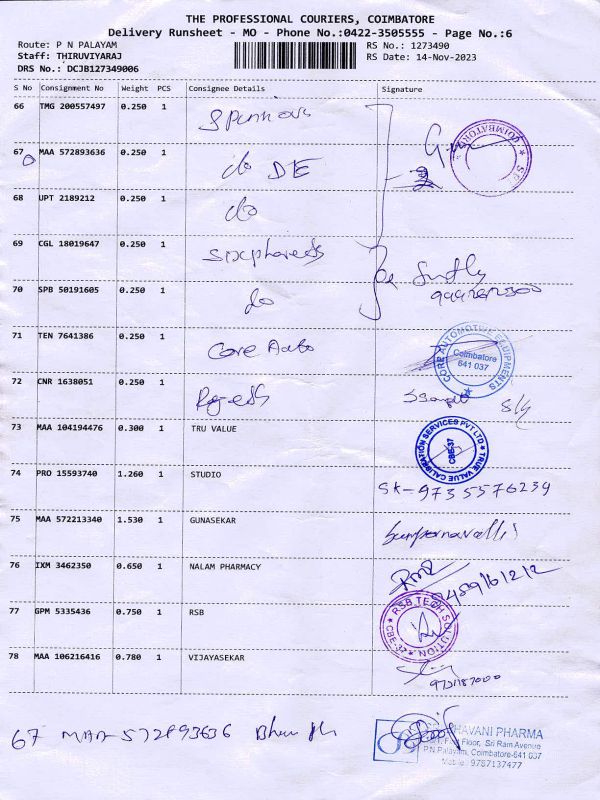 THE PROFESSIONAL COURIERS, COIMBATORE
Delivery Runsheet - MO - Phone No.:0422-3505555 - Page No.:6
Route: P N PALAYAM
RS No.: 1273490
Staff: THIRUVIYARAJ
RS Date: 14-Nov-2023
DRS No.: DCJB127349006
S No Consignment No Weight PCS Consignee Details Signature
66 TMG 200557497 0.250 1
COIMBATORE
67 MAA 572893636 0.250 1 do DE
68 UPT 2189212 0.250 1 do
69 CGL 18019647 0.250 1
70 SPB 50191605 0.250 1 do
71 TEN 7641386 0.250 1 Core Auto
CORE AUTOMOTIVE EQUIPMENTS
Coimbatore
641 037
72 CNR 1638051 0.250 1
73 MAA 104194476 0.300 1 TRU VALUE
TRUE VALUE CALIBRATION SERVICES PVT LTD
CBE-37
74 PRO 15593740 1.260 1 STUDIO
SK-9735576239
75 MAA 572213340 1.530 1 GUNASEKAR
76 IXM 3462350 0.650 1 NALAM PHARMACY
77 GPM 5335436 0.750 1 RSB
RSB TECH SOLUTION
CBE-37
78 MAA 106216416 0.780 1 VIJAYASEKAR
67 MAA 572893636
BHAVANI PHARMA
Floor, Sri Ram Avenue
P.N.Palayam, Coimbatore-641 037
Mobile: 9787137477